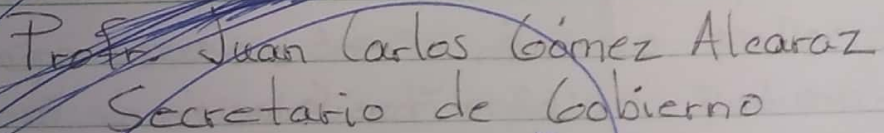 Profr. Juan Carlos Gómez Alcaraz
Secretario de Gobierno